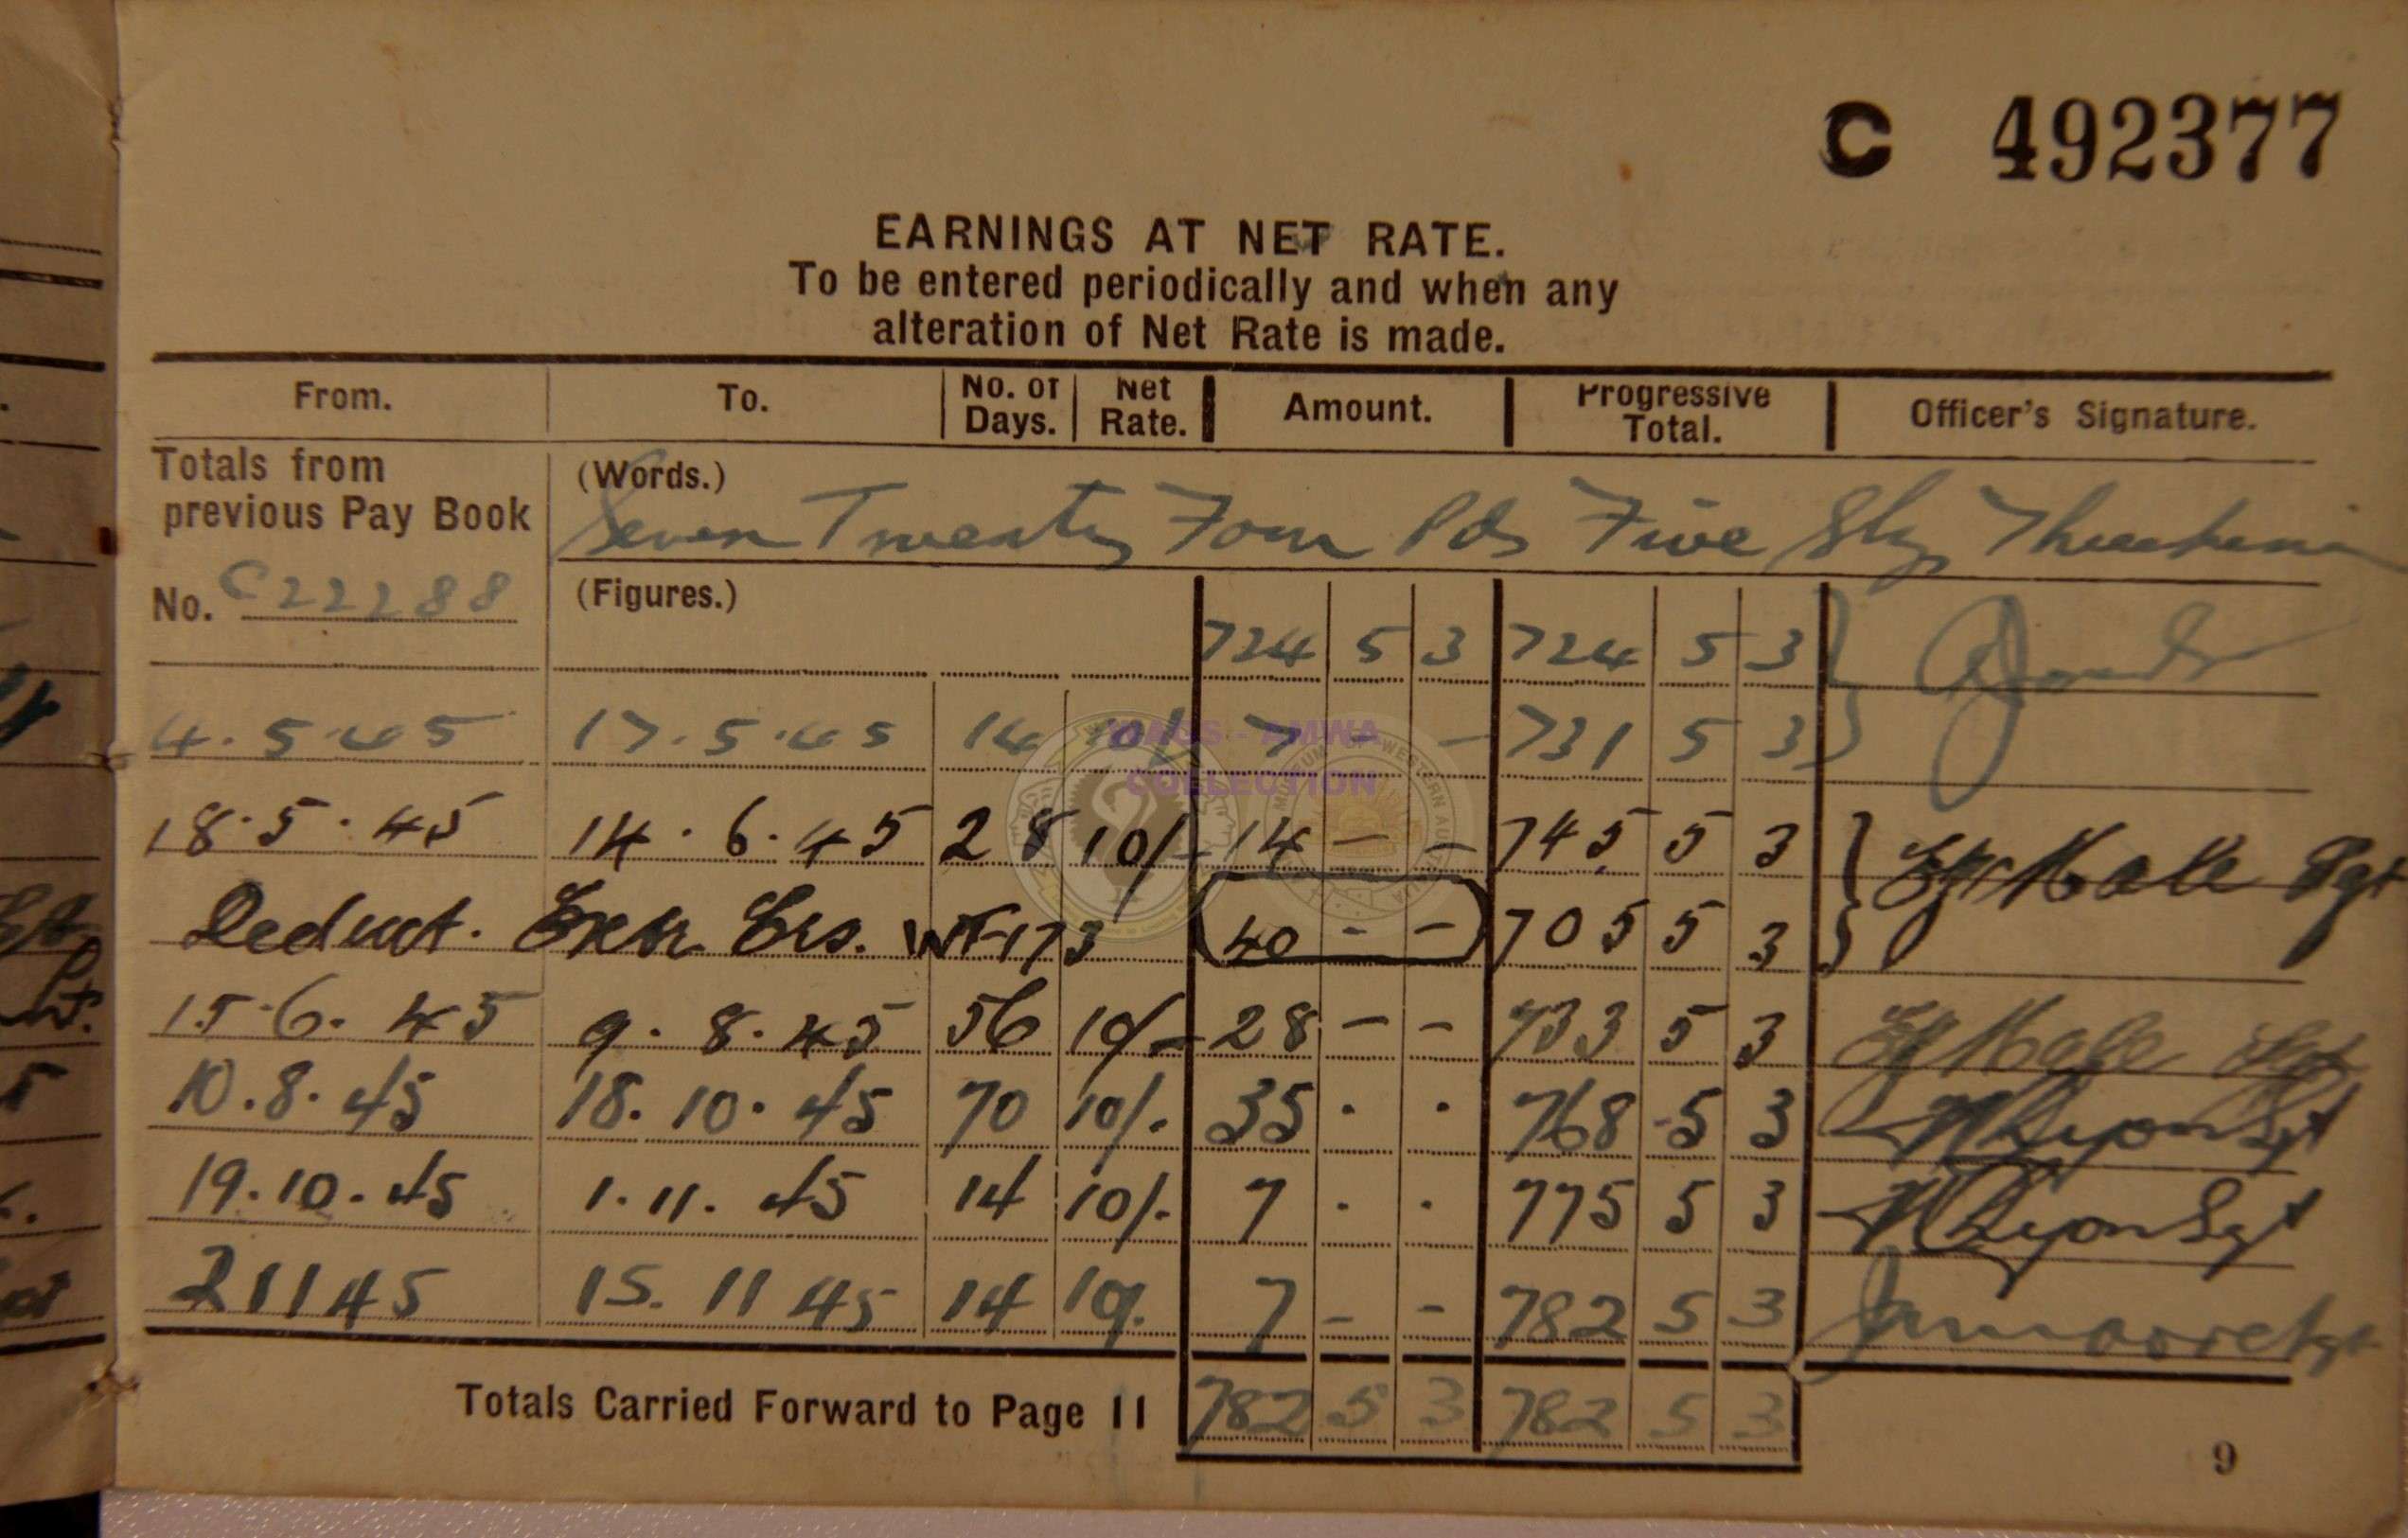 C 492377
EARNINGS AT NET RATE.
To be entered periodically and when any
alteration of Net Rate is made.
From. To. No. of Days. Net Rate. Amount. Progressive Total. Officer's Signature.
Totals from previous Pay Book (Words.) Seven Twenty Four Pds Five Shgs Threepence
No. C22288 (Figures.) 724 5 3 724 5 3
4.5.45 17.5.45 14 10/- 7 - - 731 5 3
18.5.45 14.6.45 28 10/- 14 - - 745 5 3
Deduct. WF173 40 - - 705 5 3 Sgt
15.6.45 9.8.45 56 10/- 28 - - 733 5 3 Sgt
10.8.45 18.10.45 70 10/. 35 . . 768 5 3 Lyon Sgt
19.10.45 1.11.45 14 10/. 7 . . 775 5 3 Lyon Sgt
2 11 45 15.11 45 14 10/. 7 - - 782 5 3
Totals Carried Forward to Page 11 782 5 3 782 5 3
9
WAGS - AMWA
COLLECTION